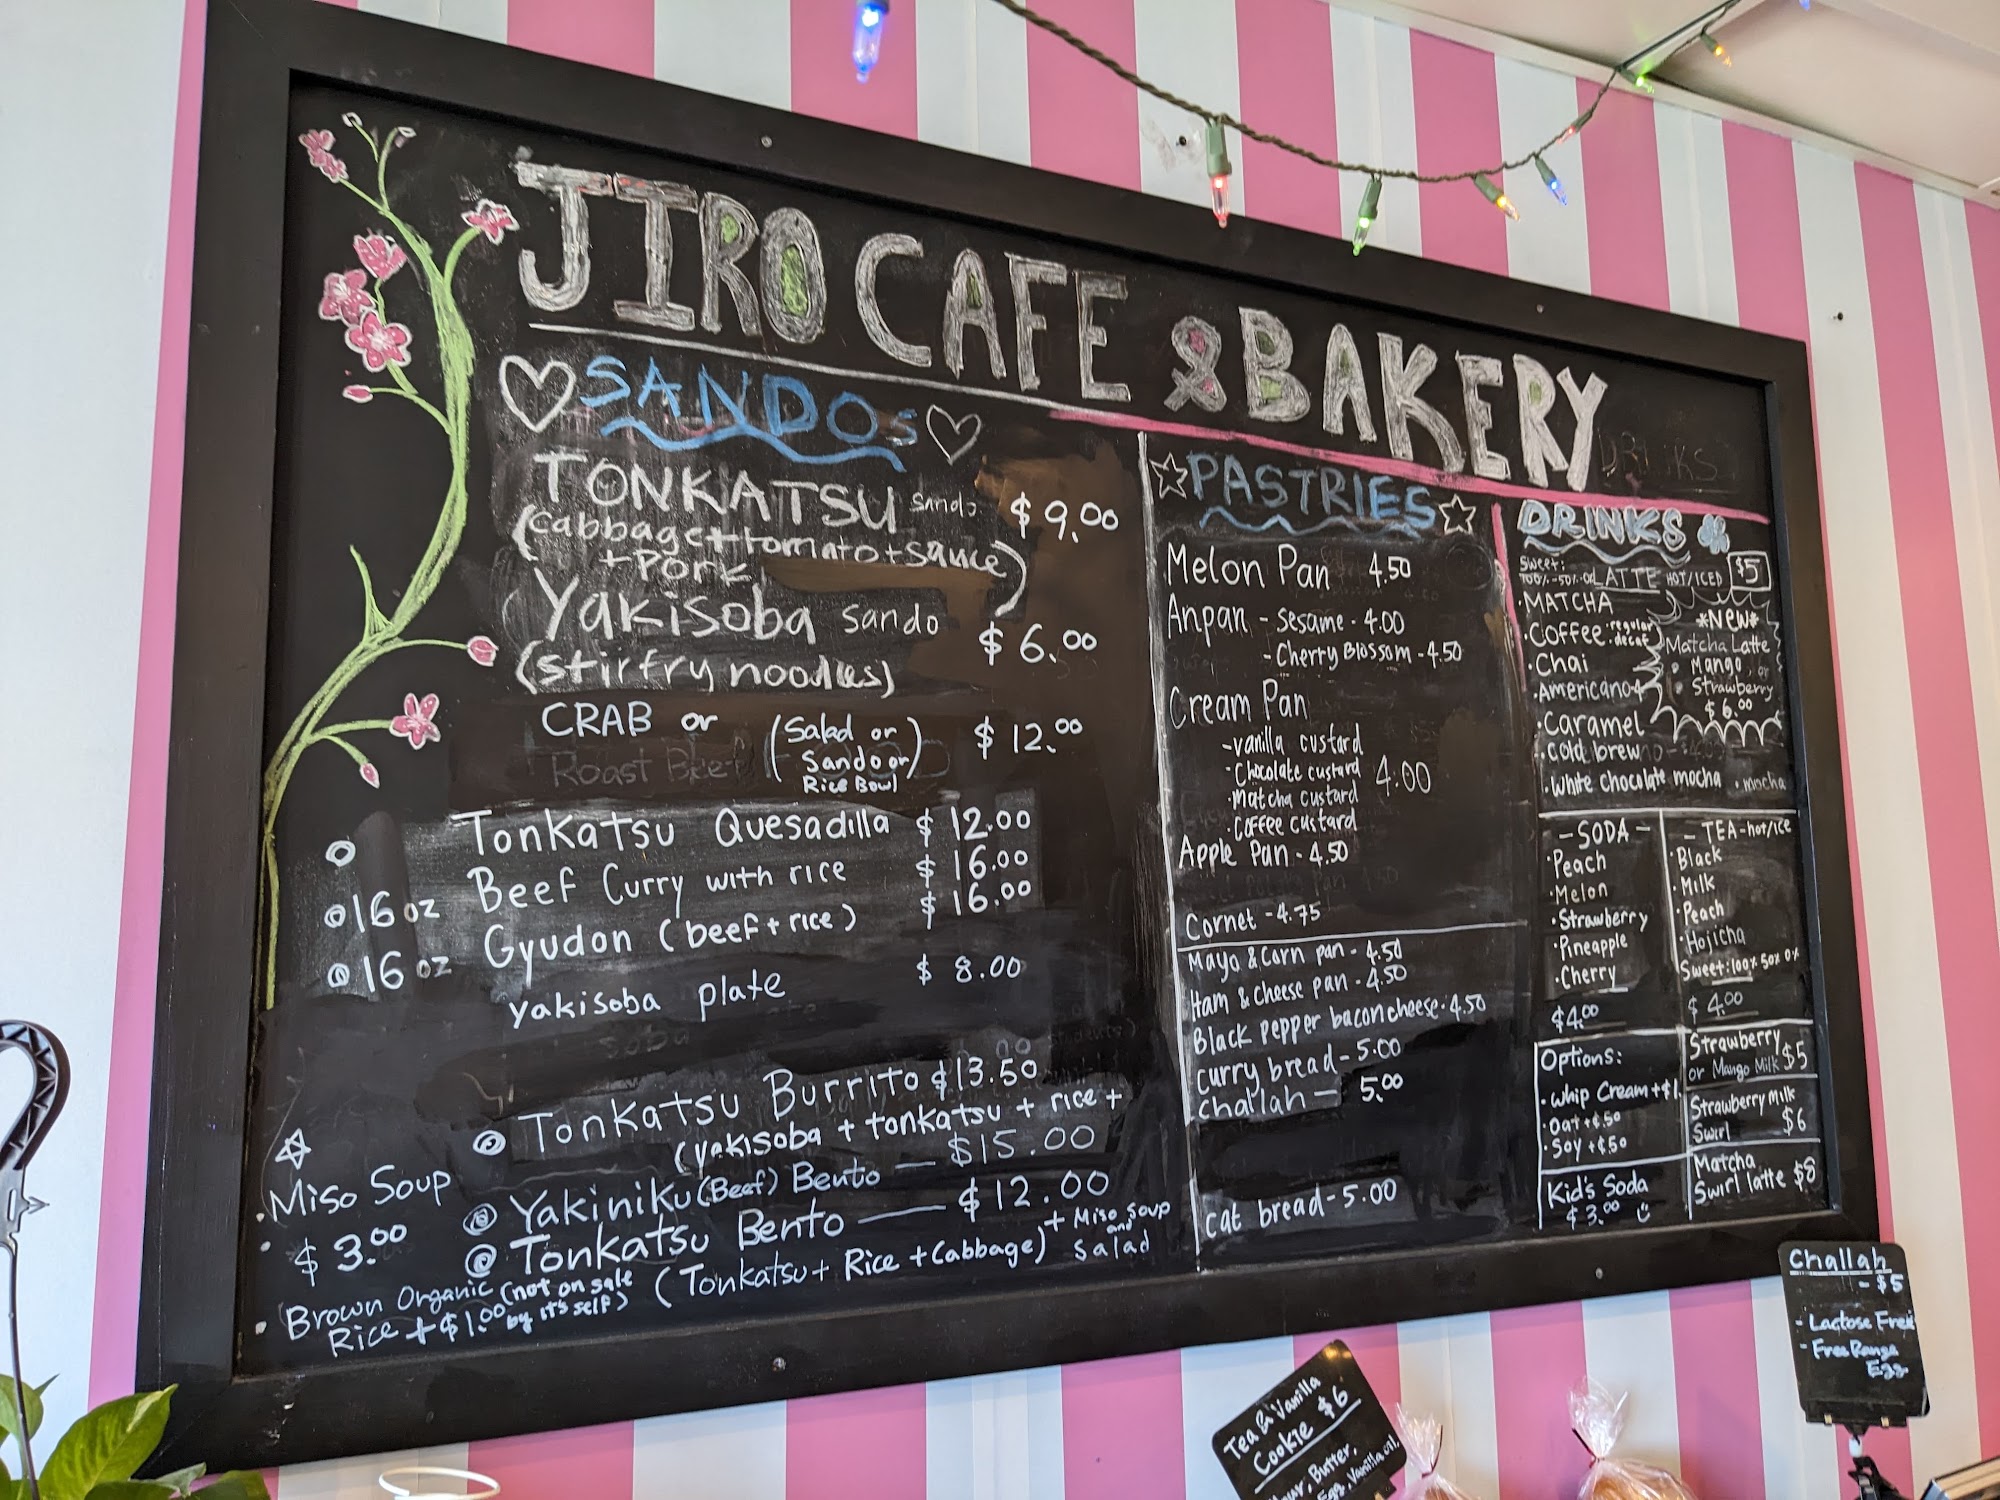 JIRO CAFE & BAKERY
SANDOS
TONKATSU sando $9.00
(cabbage+tomato+sauce)
+Pork
Yakisoba sando $6.00
(stirfry noodles)
CRAB or (Salad or $12.00
Roast Beef Sando or
Rice Bowl)
Tonkatsu Quesadilla $12.00
16oz Beef Curry with rice $16.00
16oz Gyudon (beef+rice) $16.00
yakisoba plate $8.00
Tonkatsu Burrito $13.50
(yakisoba + tonkatsu + rice +
Yakiniku (Beef) Bento — $15.00
Tonkatsu Bento — $12.00
(Tonkatsu + Rice + Cabbage) + Miso soup
and
Salad
Miso Soup
$3.00
Brown Organic (not on sale
Rice +$1.00 by it's self)
PASTRIES
Melon Pan 4.50
Anpan - sesame - 4.00
- Cherry Blossom - 4.50
Cream Pan
- vanilla custard
- Chocolate custard 4.00
- Matcha custard
- Coffee custard
Apple Pan - 4.50
Cornet - 4.75
Mayo & Corn pan - 4.50
Ham & Cheese pan - 4.50
Black pepper bacon cheese - 4.50
curry bread - 5.00
challah — 5.00
cat bread - 5.00
DRINKS
DRINKS
Sweet:
100%-50%-0% LATTE HOT/ICED $5
• MATCHA
• Coffee • regular
• decaf
• Chai
• Americano
• Caramel
• cold brew
• White chocolate mocha • mocha
*New*
Matcha Latte
• Mango or
• Strawberry
$6.00
- SODA -
• Peach
• Melon
• Strawberry
• Pineapple
• Cherry
$4.00
- TEA - hot/ice
• Black
• Milk
• Peach
• Hojicha
Sweet: 100% 50% 0%
$4.00
Options:
• whip Cream +$1.
• Oat +¢.50
• Soy +¢.50
Kid's Soda
$3.00
Strawberry
or Mango Milk $5
Strawberry Milk
Swirl $6
Matcha
Swirl latte $8
Challah
- $5
- Lactose Free
- Free Range
Egg
Tea & Vanilla
Cookie $6
Butter,
Egg, Vanilla oil,